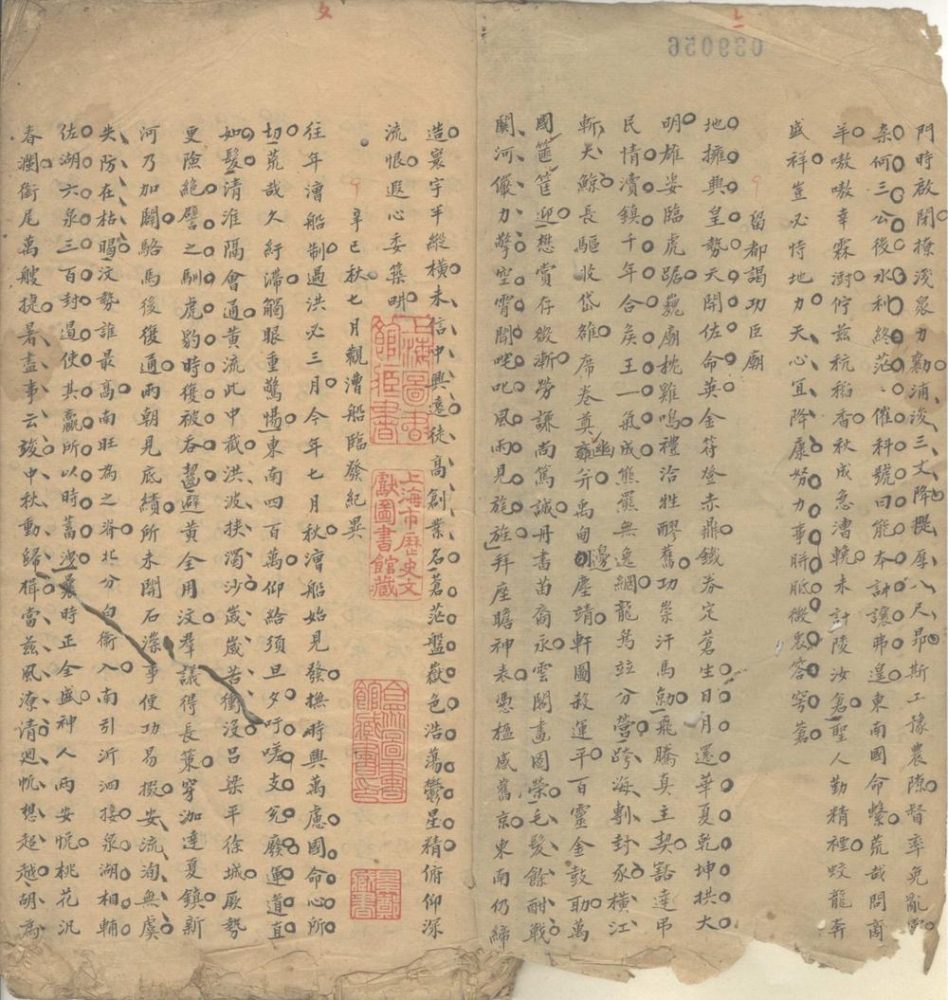 門時啟閉撩淺衆力勷浦浚三丈降隄厚八尺昂斯工豫農隙督率免亂
柰何三公後水利終茫催科號曰能本計讓弗遑東南國命蹙荒哉問商
羊嗷嗷幸霖澍佇茲秔稻香秋成急漕輓未計陵汝倉聖人勤精禋蛟龍奔
盛祥豈必恃地力天心宜降康努力事胼胝微衷答穹蒼
留都謁功臣廟
地擁興皇勢天開佐命英金符登赤鼎鐵券定蒼生日月還華夏乾坤拱大
明雄姿臨虎踞巍廟枕雞鳴禮洽牲醪舊功崇汗馬勍飛騰真主契豁達弔
民情瀆鎮千年合矦王一氣成熊羆無逸網龍竝分營跨海剸封豕橫江
斬大鯨長驅收岱雒席卷奠幽并禹甸邊塵靖軒圖殺運平百靈金鼓助萬
國篚筐迎懋賞存漸勞謙尚篤誠丹書苗裔永雲閣畫圖榮毛髮餘酣戰
關河儼力爭空霄聞咤叱風雨見旌拜座瞻神表憑楹感舊京東南仍締
造寰宇半縱橫未信中興遠徒高創業名蒼茫盤嶽色浩蕩鬱星精俯仰深
流恨遐心委築明
辛巳秋七月觀漕船臨發紀異
往年漕船制過洪必三月今年七月秋漕船始見發撫時興萬慮國命心所
切荒哉久紆滯觸眼重驚惕東南四百萬仰給須旦夕吁嗟支兌廢運道直
如髮清淮隔會通黃流此中截洪波挾濁沙歲歲苦衝沒呂梁平徐城厥勢
更險絶譬之馴虎豹時復被吞齧避黃全用汶羣議得長策穿泇達夏鎮新
河乃加闢駱馬後復通兩朝見底績所未開石深事便功易掇安流洵無虞
失防在枯暍汶勢誰最高南旺為之脊北分向衛入南引沂泗接泉湖相輔
佐湖六泉三百封過使其羸所以時蓄洩曩時正全盛神人兩安帨桃花汎
春瀾銜尾萬艘捷暑盡事云竣中秋動歸楫當茲風潦清迴帆想超越胡為
上海圖書館藏書
上海市歷史文獻圖書館藏